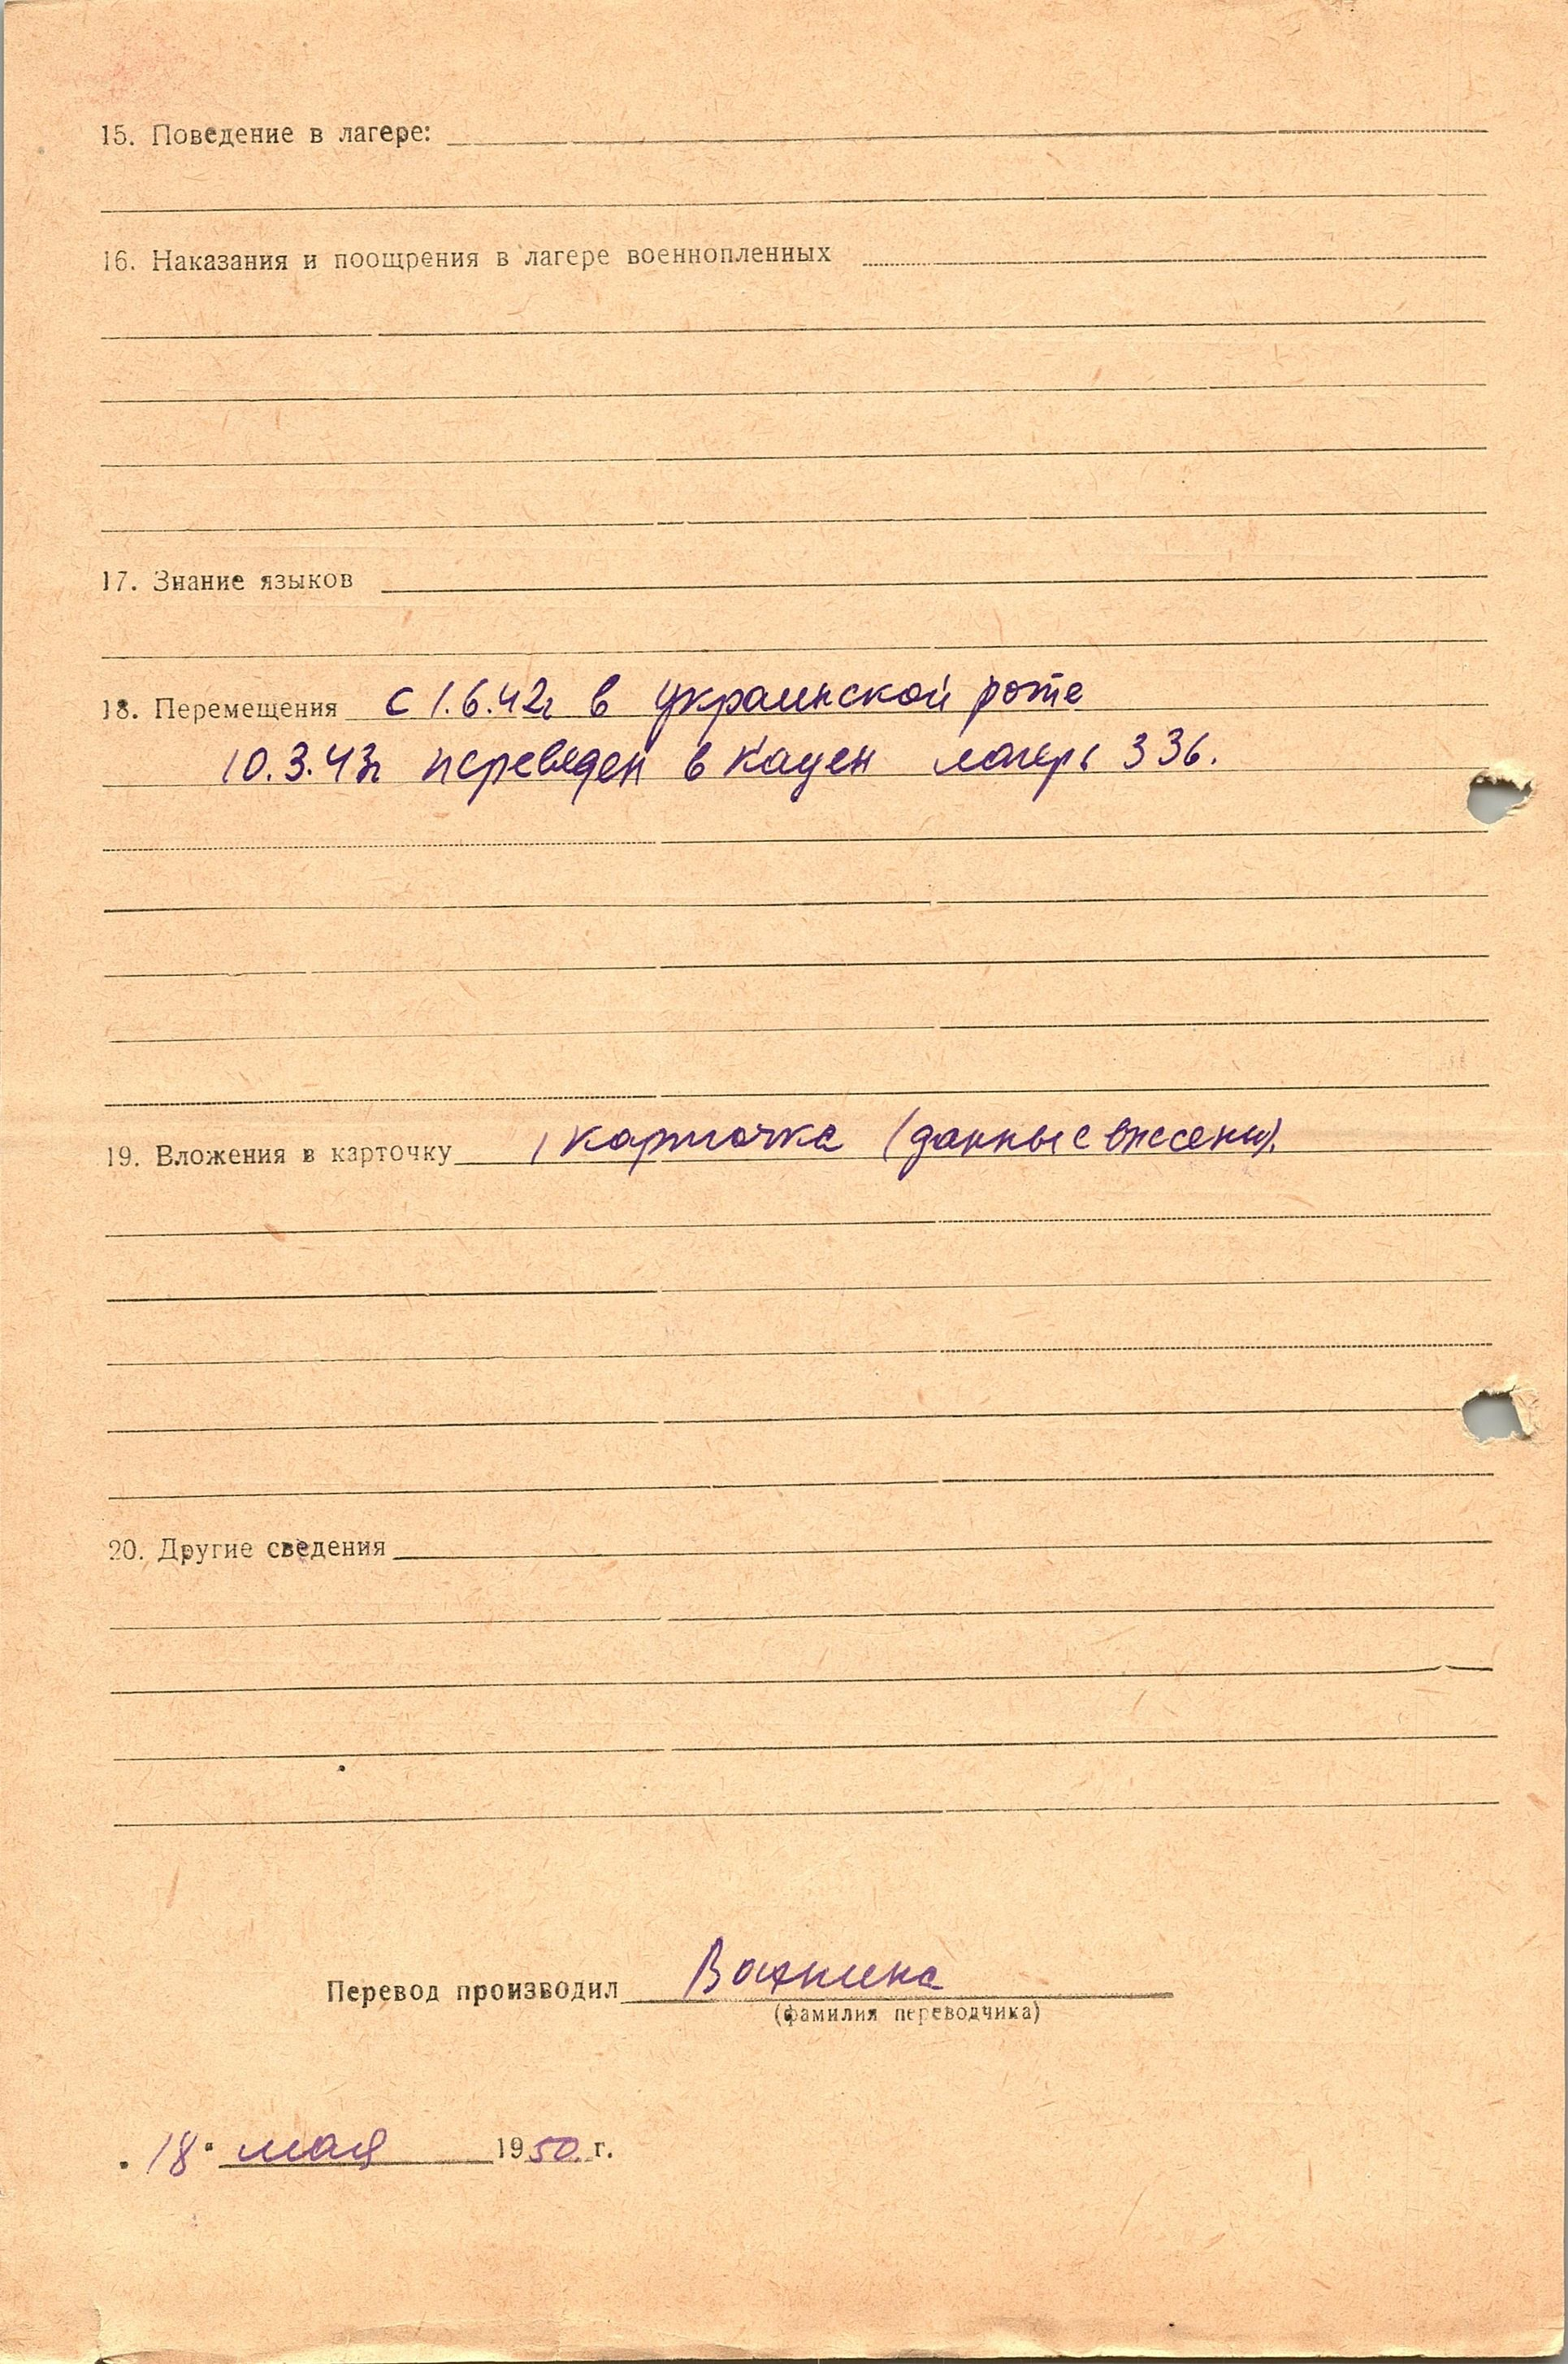 15. Поведение в лагере:
16. Наказания и поощрения в лагере военнопленных
17. Знание языков
18. Перемещения с 1.6.42г в украинской роте
10.3.43г переведен в Кауен лагерь 336.
19. Вложения в карточку 1 карточка (данные внесены).
20. Другие сведения
Перевод производил
(фамилия переводчика)
"18" мая 1950 г.